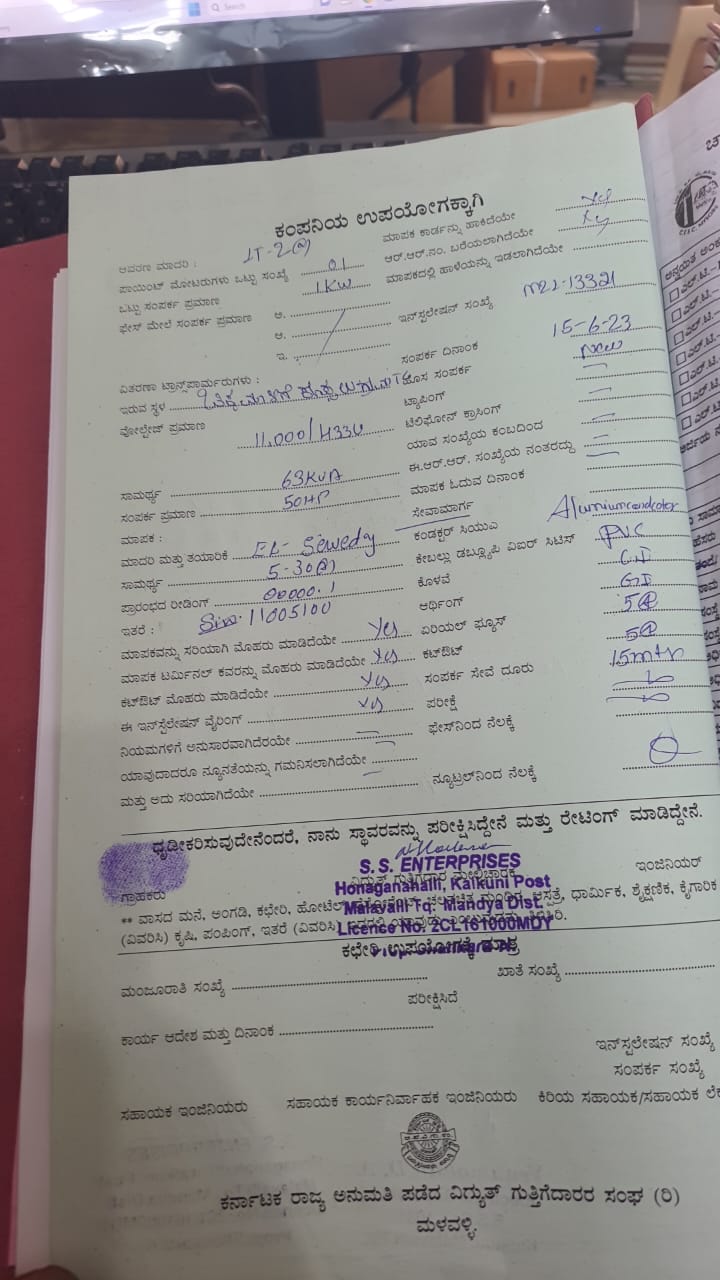 Search
ಕಂಪನಿಯ ಉಪಯೋಗಕ್ಕಾಗಿ
ಆವರಣ ಮಾದರಿ : LT-2(a) ಮಾಪಕ ಕಾರ್ಡನ್ನು ಹಾಕಿದೆಯೇ Yes
ಪಾಯಿಂಟ್ ಮೋಟರುಗಳು ಒಟ್ಟು ಸಂಖ್ಯೆ 01 ಆರ್.ಆರ್.ನಂ. ಬರೆಯಲಾಗಿದೆಯೇ Yes
ಒಟ್ಟು ಸಂಪರ್ಕ ಪ್ರಮಾಣ 1KW ಮಾಪಕದಲ್ಲಿ ಹಾಳೆಯನ್ನು ಇಡಲಾಗಿದೆಯೇ
ಫೇಸ್ ಮೇಲೆ ಸಂಪರ್ಕ ಪ್ರಮಾಣ ಅ.
ಆ. ಇನ್‌ಸ್ಟಲೇಷನ್ ಸಂಖ್ಯೆ M22-13321
ಇ.
ವಿತರಣಾ ಟ್ರಾನ್ಸ್‌ಫಾರ್ಮರುಗಳು : ಸಂಪರ್ಕ ದಿನಾಂಕ 15-6-23
ಇರುವ ಸ್ಥಳ ಹೊಸ ಸಂಪರ್ಕ New
ವೋಲ್ಟೇಜ್ ಪ್ರಮಾಣ 11,000/433V ಟ್ಯಾಪಿಂಗ್
ಟೆಲಿಫೋನ್ ಕ್ರಾಸಿಂಗ್
ಯಾವ ಸಂಖ್ಯೆಯ ಕಂಬದಿಂದ
ಸಾಮರ್ಥ್ಯ 63KVA ಈ.ಆರ್.ಆರ್. ಸಂಖ್ಯೆಯ ನಂತರದ್ದು
ಸಂಪರ್ಕ ಪ್ರಮಾಣ 50HP ಮಾಪಕ ಓದುವ ದಿನಾಂಕ
ಮಾಪಕ : ಸೇವಾಮಾರ್ಗ
ಮಾದರಿ ಮತ್ತು ತಯಾರಿಕೆ EL-Sewedy ಕಂಡಕ್ಟರ್ ಸಿಯುಎ
ಸಾಮರ್ಥ್ಯ 5-30(A) ಕೇಬಲ್ಲು ಡಬ್ಲ್ಯೂಪಿ ವಿಐಆರ್ ಸಿಟಿಸ್ PVC
ಪ್ರಾರಂಭದ ರೀಡಿಂಗ್ 00000.1 ಕೊಳವೆ G.I
ಇತರೆ : 11005100 ಆರ್ಥಿಂಗ್ GI
ಮಾಪಕವನ್ನು ಸರಿಯಾಗಿ ಮೊಹರು ಮಾಡಿದೆಯೇ Yes ಏರಿಯಲ್ ಫ್ಯೂಸ್ 5A
ಮಾಪಕ ಟರ್ಮಿನಲ್ ಕವರನ್ನು ಮೊಹರು ಮಾಡಿದೆಯೇ Yes ಕಟ್‌ಔಟ್ 5A
ಕಟ್‌ಔಟ್ ಮೊಹರು ಮಾಡಿದೆಯೇ Yes ಸಂಪರ್ಕ ಸೇವೆ ದೂರು 15mtr
ಈ ಇನ್‌ಸ್ಟಲೇಷನ್ ವೈರಿಂಗ್ Yes ಪರೀಕ್ಷೆ
ನಿಯಮಗಳಿಗೆ ಅನುಸಾರವಾಗಿದೆಯೇ ಫೇಸ್‌ನಿಂದ ನೆಲಕ್ಕೆ
ಯಾವುದಾದರೂ ನ್ಯೂನತೆಯನ್ನು ಗಮನಿಸಲಾಗಿದೆಯೇ
ಮತ್ತು ಅದು ಸರಿಯಾಗಿದೆಯೇ ನ್ಯೂಟ್ರಲ್‌ನಿಂದ ನೆಲಕ್ಕೆ
ಧೃಡೀಕರಿಸುವುದೇನೆಂದರೆ, ನಾನು ಸ್ಥಾವರವನ್ನು ಪರೀಕ್ಷಿಸಿದ್ದೇನೆ ಮತ್ತು ರೇಟಿಂಗ್ ಮಾಡಿದ್ದೇನೆ.
S. S. ENTERPRISES
ಗ್ರಾಹಕರು ವಿದ್ಯುತ್ ಗುತ್ತಿಗೆದಾರ ಮೇಲ್ವಿಚಾರಕ ಇಂಜಿನಿಯರ್
Honaganahalli, Kalkuni Post
** ವಾಸದ ಮನೆ, ಅಂಗಡಿ, ಕಛೇರಿ, ಹೋಟೆಲ್, ಆಸ್ಪತ್ರೆ, ಧಾರ್ಮಿಕ, ಶೈಕ್ಷಣಿಕ, ಕೈಗಾರಿಕ
Malavalli Tq. Mandya Dist.
(ವಿವರಿಸಿ) ಕೃಷಿ, ಪಂಪಿಂಗ್, ಇತರೆ (ವಿವರಿಸಿ)
Licence No. 2CL161000MDY
ಕಛೇರಿ ಉಪಯೋಗಕ್ಕೆ ಮಾತ್ರ
ಮಂಜೂರಾತಿ ಸಂಖ್ಯೆ ಖಾತೆ ಸಂಖ್ಯೆ
ಪರೀಕ್ಷಿಸಿದೆ
ಕಾರ್ಯ ಆದೇಶ ಮತ್ತು ದಿನಾಂಕ
ಇನ್‌ಸ್ಟಲೇಷನ್ ಸಂಖ್ಯೆ
ಸಂಪರ್ಕ ಸಂಖ್ಯೆ
ಸಹಾಯಕ ಇಂಜಿನಿಯರು ಸಹಾಯಕ ಕಾರ್ಯನಿರ್ವಾಹಕ ಇಂಜಿನಿಯರು ಕಿರಿಯ ಸಹಾಯಕ/ಸಹಾಯಕ
ಕರ್ನಾಟಕ ರಾಜ್ಯ ಅನುಮತಿ ಪಡೆದ ವಿದ್ಯುತ್ ಗುತ್ತಿಗೆದಾರರ ಸಂಘ (ರಿ)
ಮಳವಳ್ಳಿ.